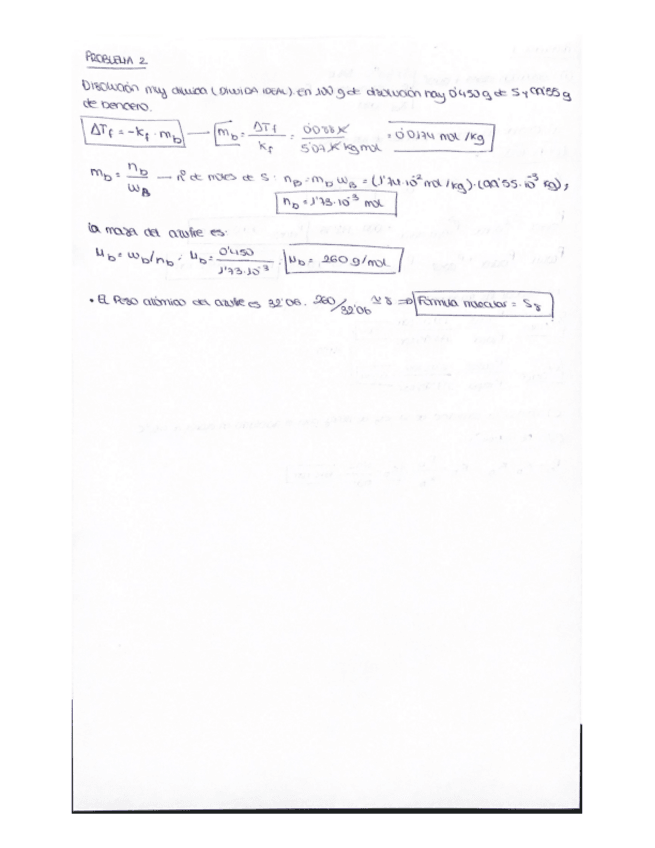 PROBLEMA 2
DISOLUCIÓN muy diluida (DILUIDA IDEAL). En 100 g de disolución hay 0'450 g de S y 99'55 g
de benceno.
ΔTf = -Kf · mb — mb = ΔTf / Kf = 0'088 K / 5'07 K kg mol = 0'0174 mol /kg
mb = nb / WB — nº de moles de S: nB = mb WB = (1'74·10⁻² mol/kg)·(99'55·10⁻³ kg);
nb = 1'73·10⁻³ mol
la masa del azufre es:
Mb = Wb/nb; Mb = 0'450 / 1'73·10⁻³; Mb = 260 g/mol
• El Peso atómico del azufre es 32'06. 260/32'06 ≃ 8 ⇒ Fórmula molecular = S8